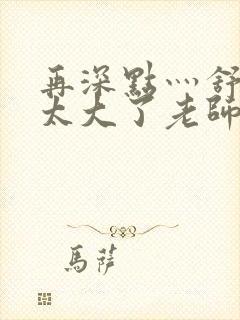 再深點灬舒
太大了老師
馬薩